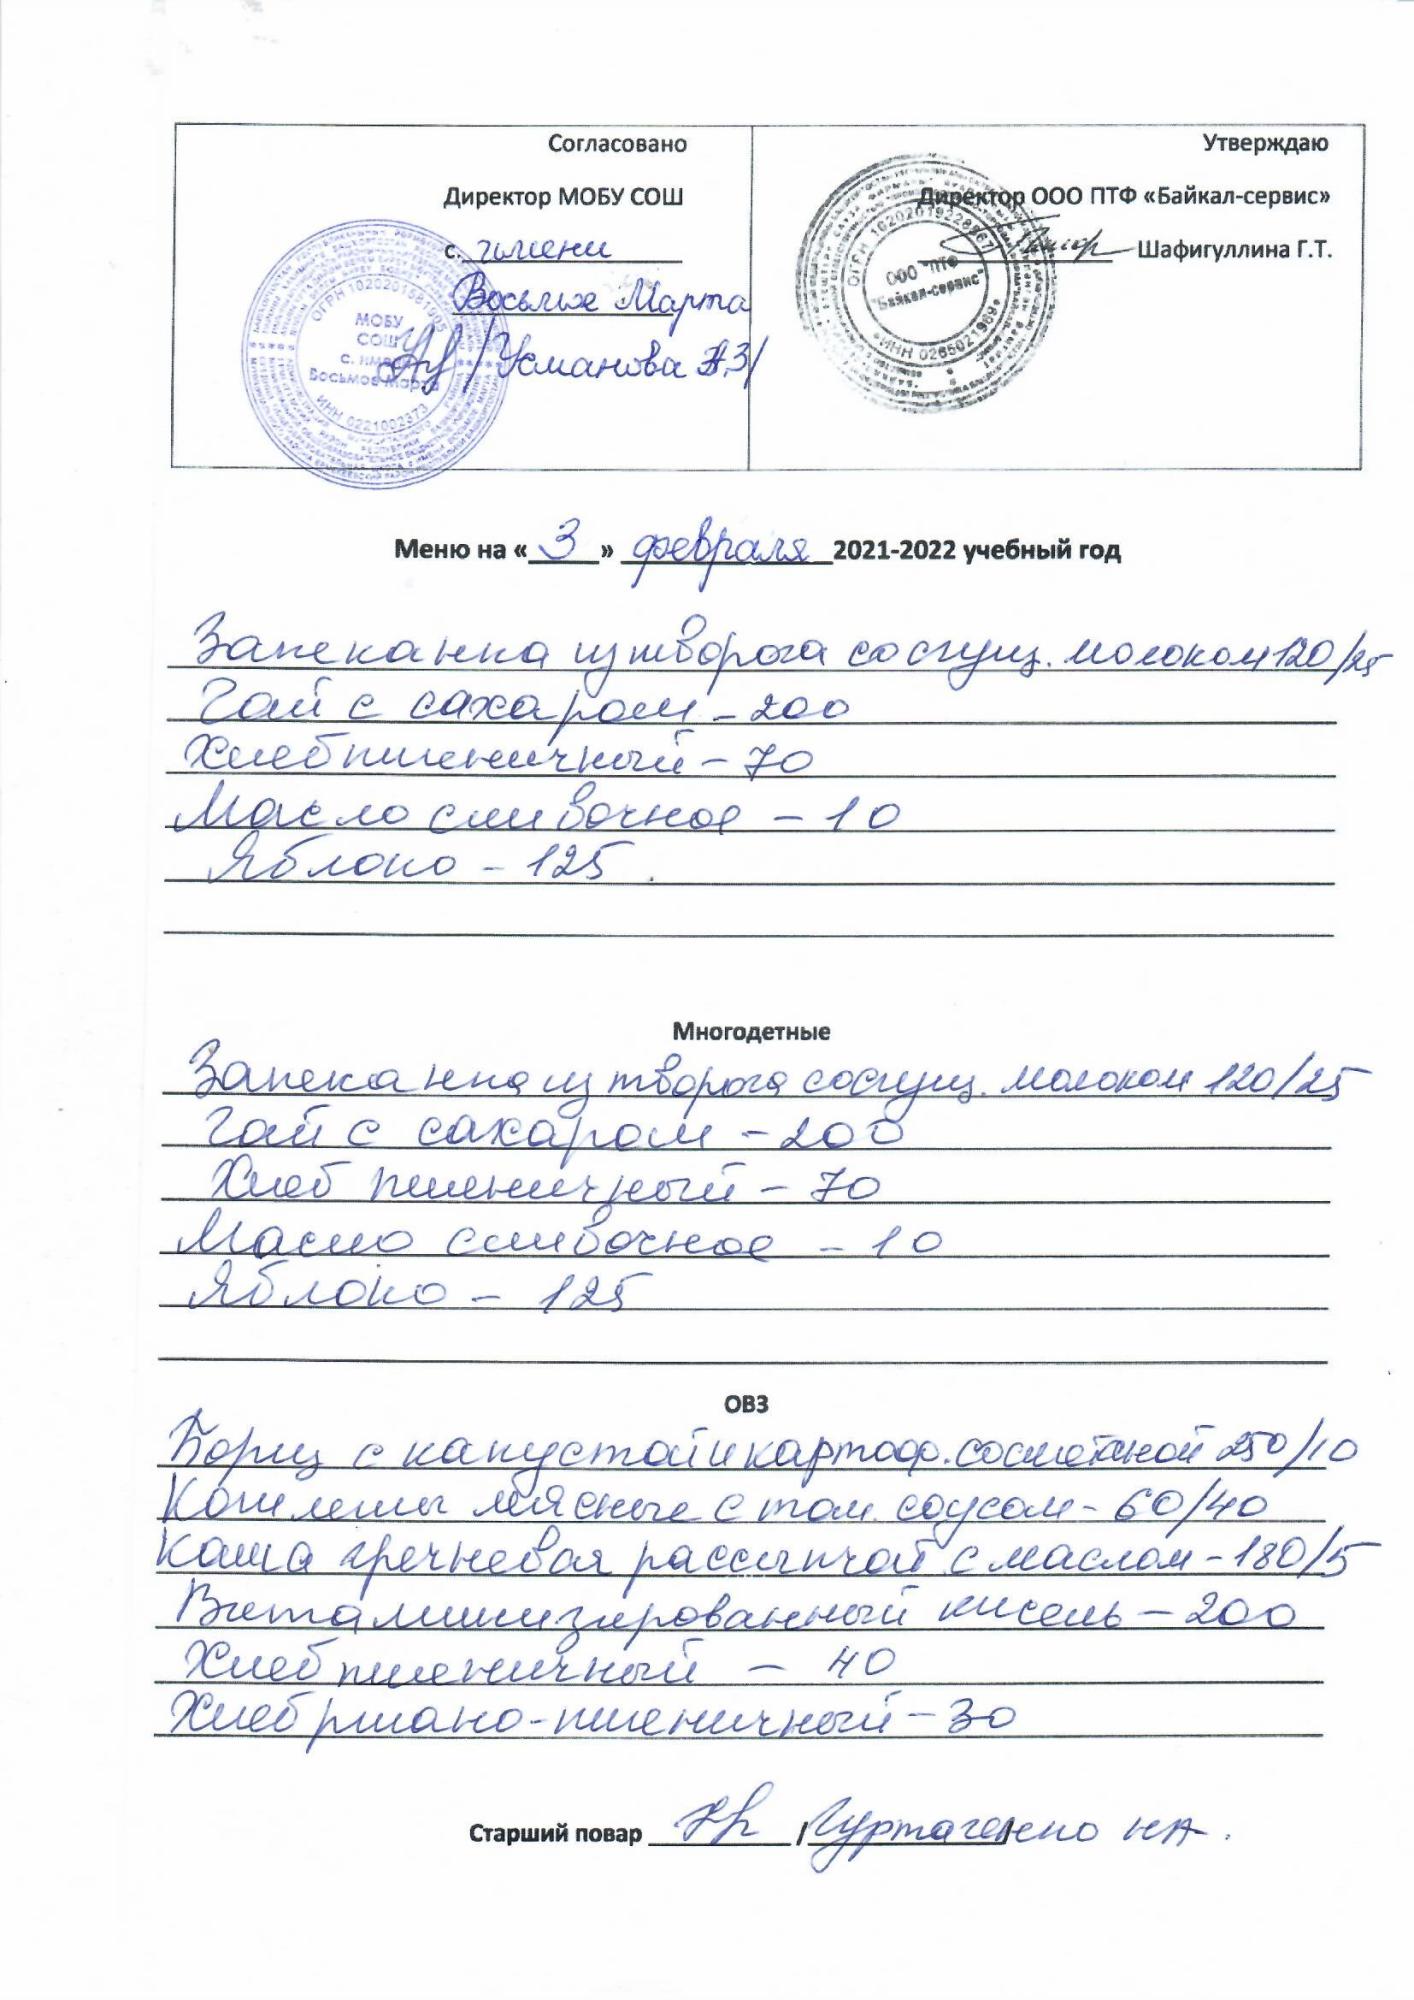 Согласовано
Директор МОБУ СОШ
с. имени
Восьмое Марта
/Усманова А.З/
ОГРН
МОБУ
СОШ
с. имени
Восьмое Марта
ИНН 0221002373
Утверждаю
Директор ООО ПТФ «Байкал-сервис»
Шафигуллина Г.Т.
ООО "ПТФ
"Байкал-сервис"
Меню на « 3 » февраля 2021-2022 учебный год
Запеканка из творога со сгущ. молоком 120/25
Чай с сахаром - 200
Хлеб пшеничный - 70
Масло сливочное - 10
Яблоко - 125.
Многодетные
Запеканка из творога со сгущ. молоком 120/25
Чай с сахаром - 200
Хлеб пшеничный - 70
Масло сливочное - 10
Яблоко - 125
ОВЗ
Борщ с капустой и картоф. со сметаной 250/10
Котлеты мясные с том. соусом - 60/40
Каша гречневая рассыпчой с маслом - 180/5
Витаминизированный кисель - 200
Хлеб пшеничный - 40
Хлеб ржано-пшеничный - 30
Старший повар / Н.А.